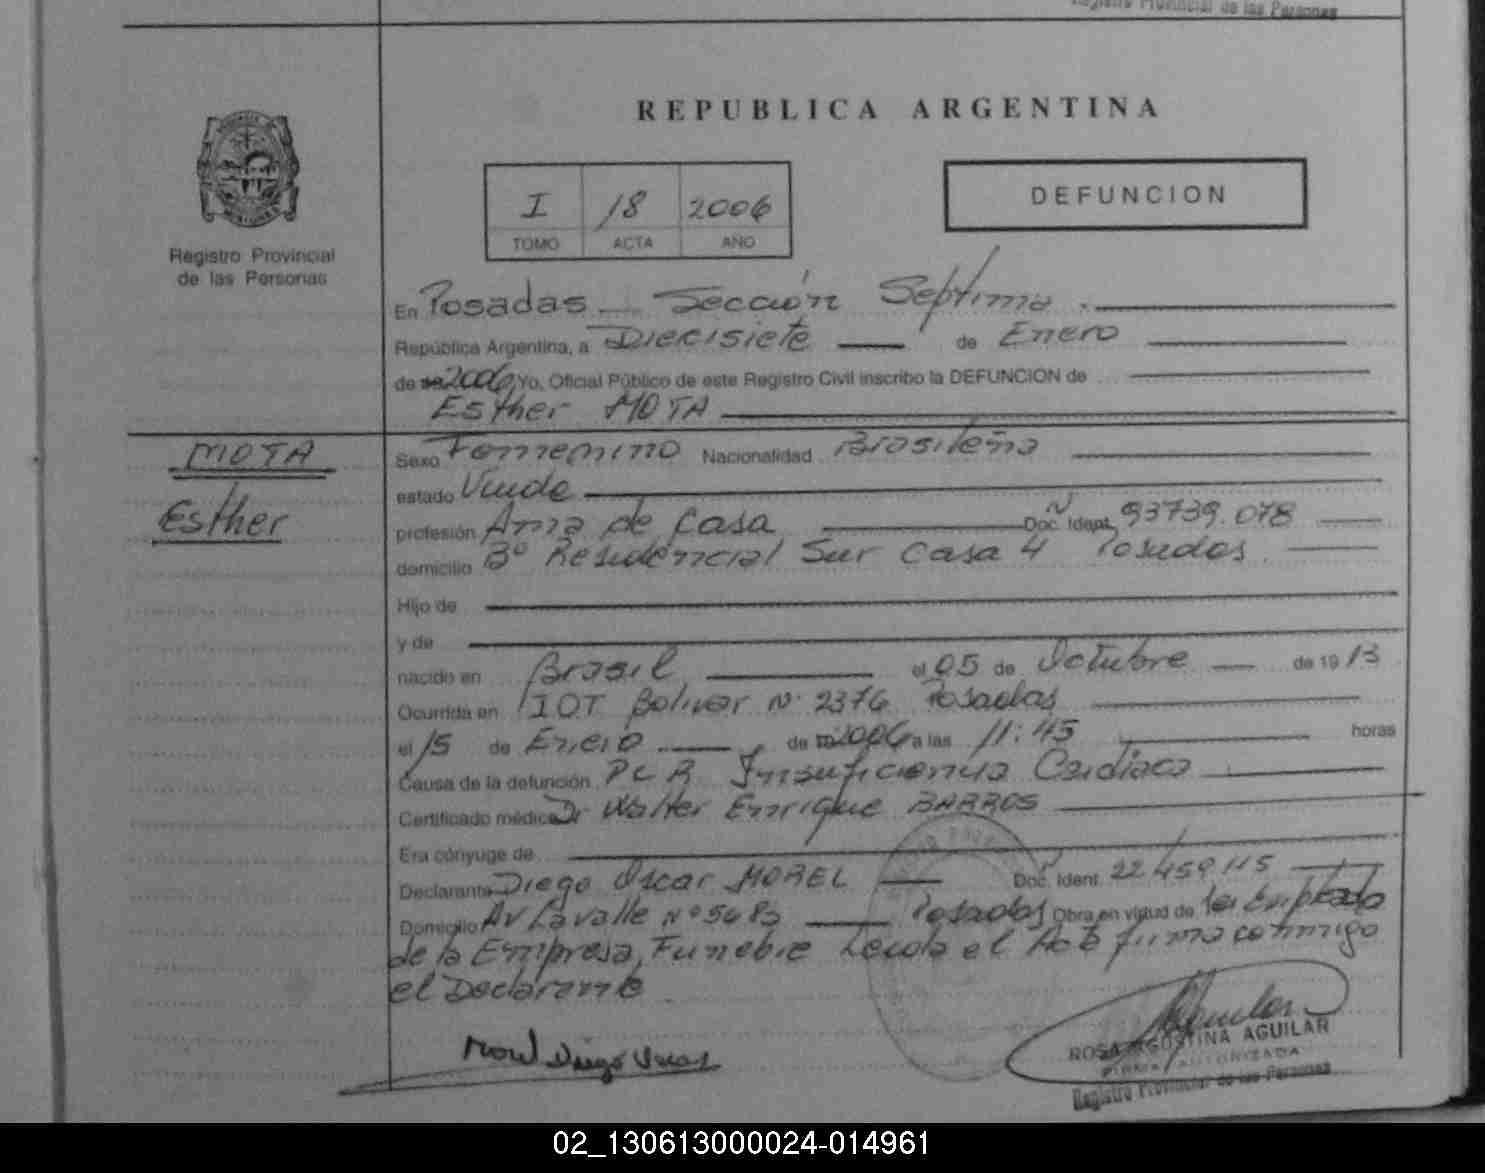 Registro Provincial de las Personas
REPUBLICA ARGENTINA
I 18 2006
TOMO ACTA AÑO
DEFUNCION
Registro Provincial
de las Personas
En Posadas Sección Septima.
República Argentina, a Diecisiete de Enero
de 2006 Yo, Oficial Público de este Registro Civil inscribo la DEFUNCION de
Esther MOTA
MOTA
Esther
Sexo Femenino Nacionalidad Brasileña
estado Viuda
profesión Ama de Casa Doc. Ident. 93739.078
domicilio Bº Residencial Sur Casa 4 Posadas.
Hijo de
y de
nacido en Brasil el 05 de Octubre de 1913
Ocurrida en IOT Bolivar Nº 2376 Posadas
el 15 de Enero de 2006 a las 11:45 horas
Causa de la defunción PCR Insuficiencia Cardiaca
Certificado médico Dr Walter Enrique BARROS
Era cónyuge de
Declarante Diego Oscar MOREL Doc. Ident. 22.459.115
Domicilio Av Lavalle Nº 5683 Posadas Obra en virtud de Ser Empleado
de la Empresa Funebre Leida el Acta firma conmigo
el Declarante
Morel Diego Oscar
ROSA AGOSTINA AGUILAR
FIRMA AUTORIZADA
Registro Provincial de las Personas
02_130613000024-014961